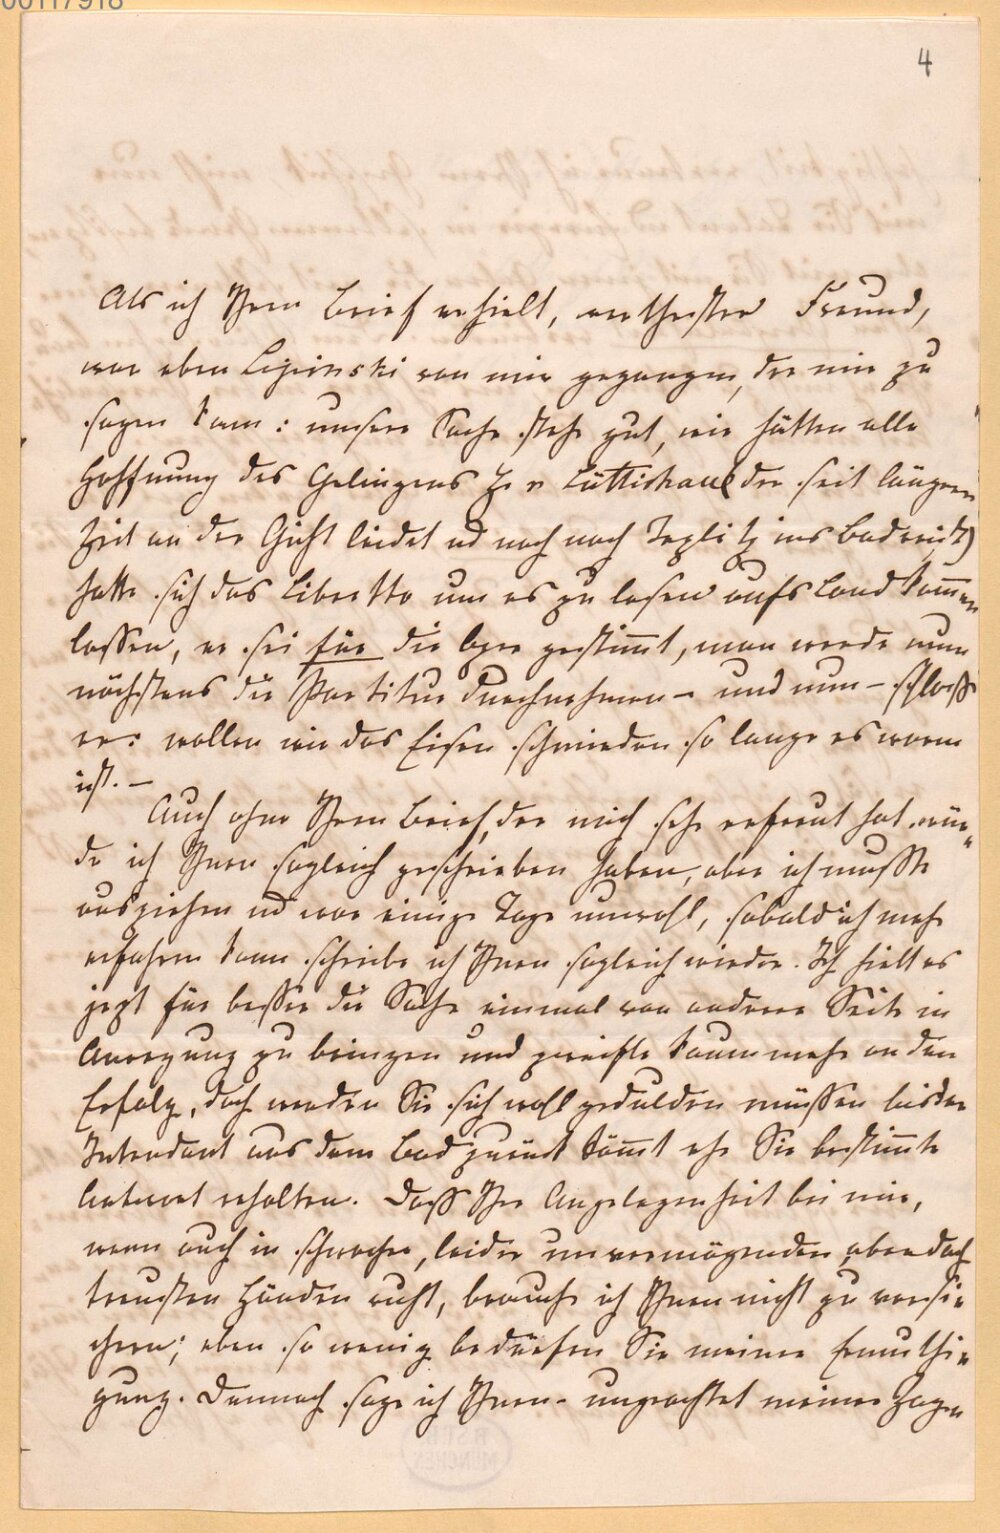 00117918
4
Als ich Ihren Brief erhielt, verthester Freund,
war eben Lipinski von mir gegangen, der mir zu
sagen kam: unsere Sache stehe gut, wir hätten alle
Hoffnung des Gelingens H. v Lüttichau (der seit längerer
Zeit an der Gicht leidet ud noch nach Teplitz ins Bad reist)
hatte sich das Libretto um es zu lesen aufs Land kommen
lassen, er sei für die Oper gestimmt, man werde nun
nächstens die Partitur durchnehmen – und nun – schloß
er: wollen wir das Eisen schmieden so lange es warm
ist. –
Auch ohne Ihren Brief, der mich sehr erfreut hat wür-
de ich Ihnen sogleich geschrieben haben, aber ich mußte
ausziehen ud war einige Tage unwohl, sobald ich mehr
erfahren kann schreibe ich Ihnen sogleich wieder. Ich hielt es
jezt für besser die Sache einmal von anderer Seite in
Anregung zu bringen und zweifle kaum mehr an dem
Erfolg, doch werden Sie sich wohl gedulden müssen bis der
Intendant aus dem Bad zurück kömmt ehe Sie bestimmte
Antwort erhalten. Daß Ihre Angelegenheit bei mir,
wenn auch in schwachen, leider unvermögenden aber doch
treusten Händen ruht, brauche ich Ihnen nicht zu versi-
chern; eben so wenig bedürfen Sie meiner Ermuthi-
gung. Dennoch sage ich Ihnen – ungeachtet meines Zagen